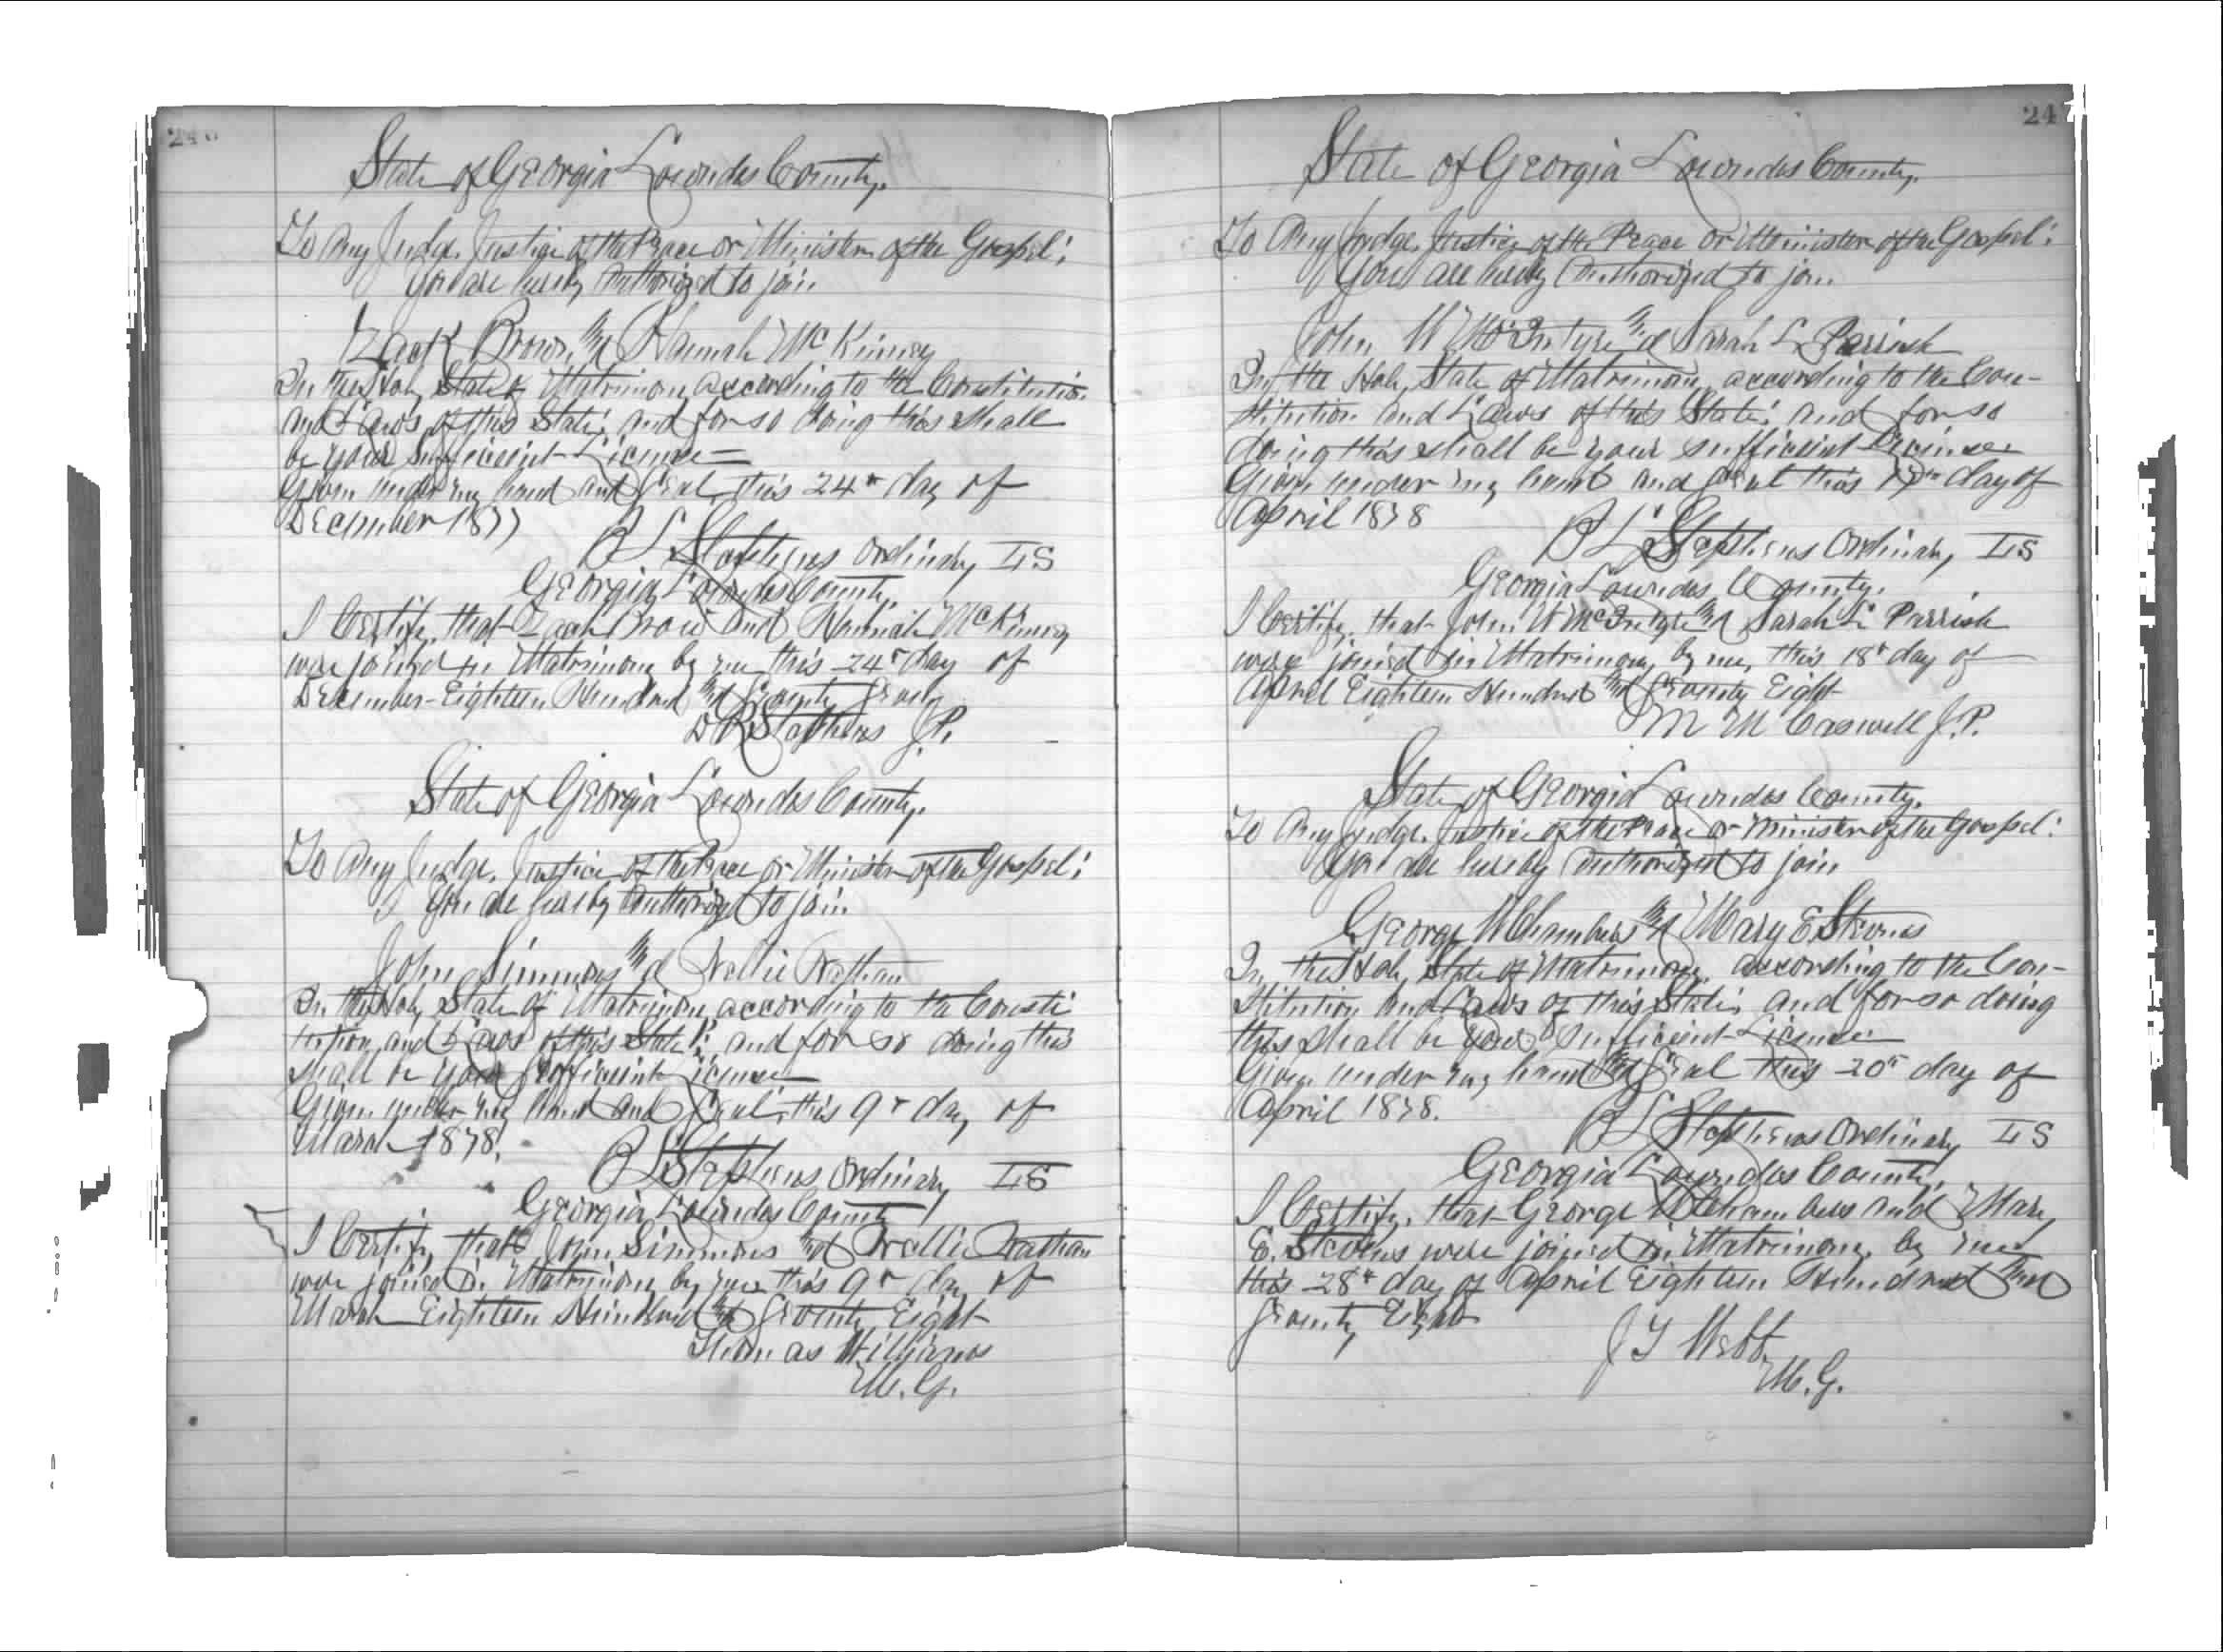 246
State of Georgia Lowndes County.
To Any Judge, Justice of the Peace or Minister of the Gospel;
You are hereby Authorized to join
Zack Brown and Hannah McKinney
In the Holy State of Matrimony according to the Constitution
and Laws of this State; and for so doing this shall
be your Sufficient License
Given under my hand and Seal, this 24th day of
December 1877
Stephens Ordinary LS
Georgia Lowndes County.
I Certify, that Zack Brown and Hannah McKinney
were joined in Matrimony by me this 24th day of
December Eighteen Hundred and Seventy Seven
D R Stephens J.P.
State of Georgia Lowndes County.
To Any Judge, Justice of the Peace or Minister of the Gospel;
You are hereby Authorized to join
John Simmons and Nellie Nathan
In the Holy State of Matrimony according to the Consti
tution, and Laws of this State; and for so doing this
shall be your Sufficient License
Given under my hand and Seal, this 9th day of
March 1878.
Stephens Ordinary LS
Georgia Lowndes County
I Certify, that John Simmons and Nellie Nathan
were joined in Matrimony by me this 9th day of
March Eighteen Hundred and Seventy Eight
Thomas Williams
M.G.
24
State of Georgia Lowndes County.
To Any Judge, Justice of the Peace or Minister of the Gospel:
You are hereby Authorized to join
John W McIntyre and Sarah L Parrish
In the Holy State of Matrimony, according to the Con-
stitution and Laws of this State; and for so
doing this shall be your sufficient License
Given under my hand and Seal this 17th day of
April 1878
Stephens Ordinary LS
Georgia Lowndes County.
I Certify, that John W McIntyre and Sarah L Parrish
were joined in Matrimony, by me, this 18th day of
April Eighteen Hundred and Seventy Eight
M M Caswell J.P.
State of Georgia Lowndes County.
To Any Judge, Justice of the Peace or Minister of the Gospel:
You are hereby Authorized to join
George W Chambers and Mary E. Stevens
In the Holy State of Matrimony, according to the Con-
stitution and Laws of this State; and for so doing
this shall be your sufficient License
Given under my hand and Seal this 20th day of
April 1878.
Stephens Ordinary LS
Georgia Lowndes County.
I Certify, that George W Chambers and Mary
E. Stevens were joined in Matrimony, by me
this 28th day of April Eighteen Hundred and
Seventy Eight
J T Webb
M.G.